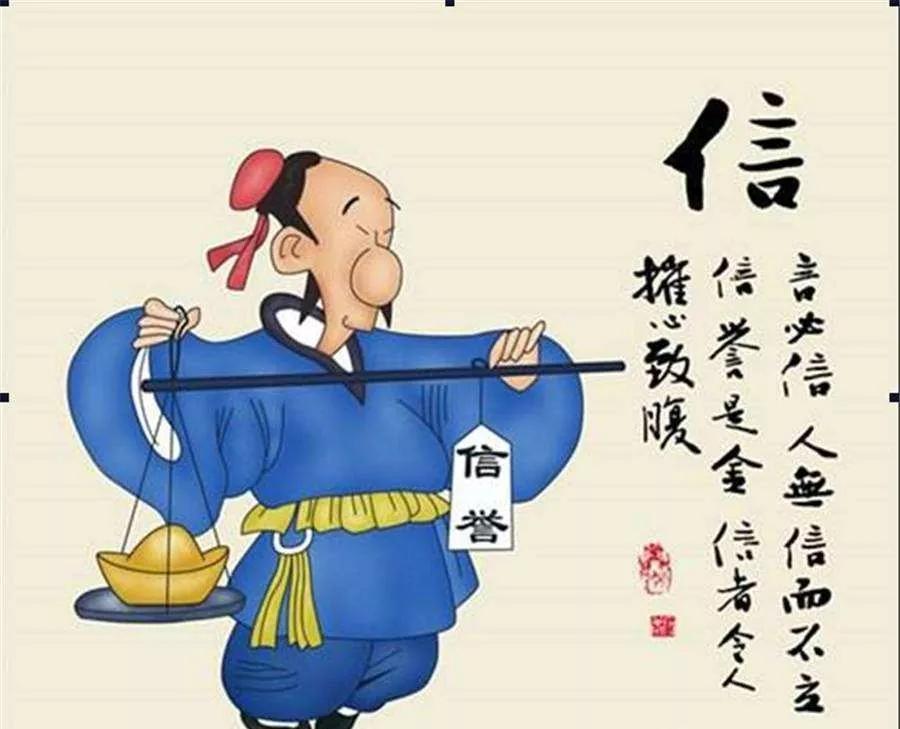 信
言必信人無信而不立
信誉是金信者令人
摧心致腹
信誉